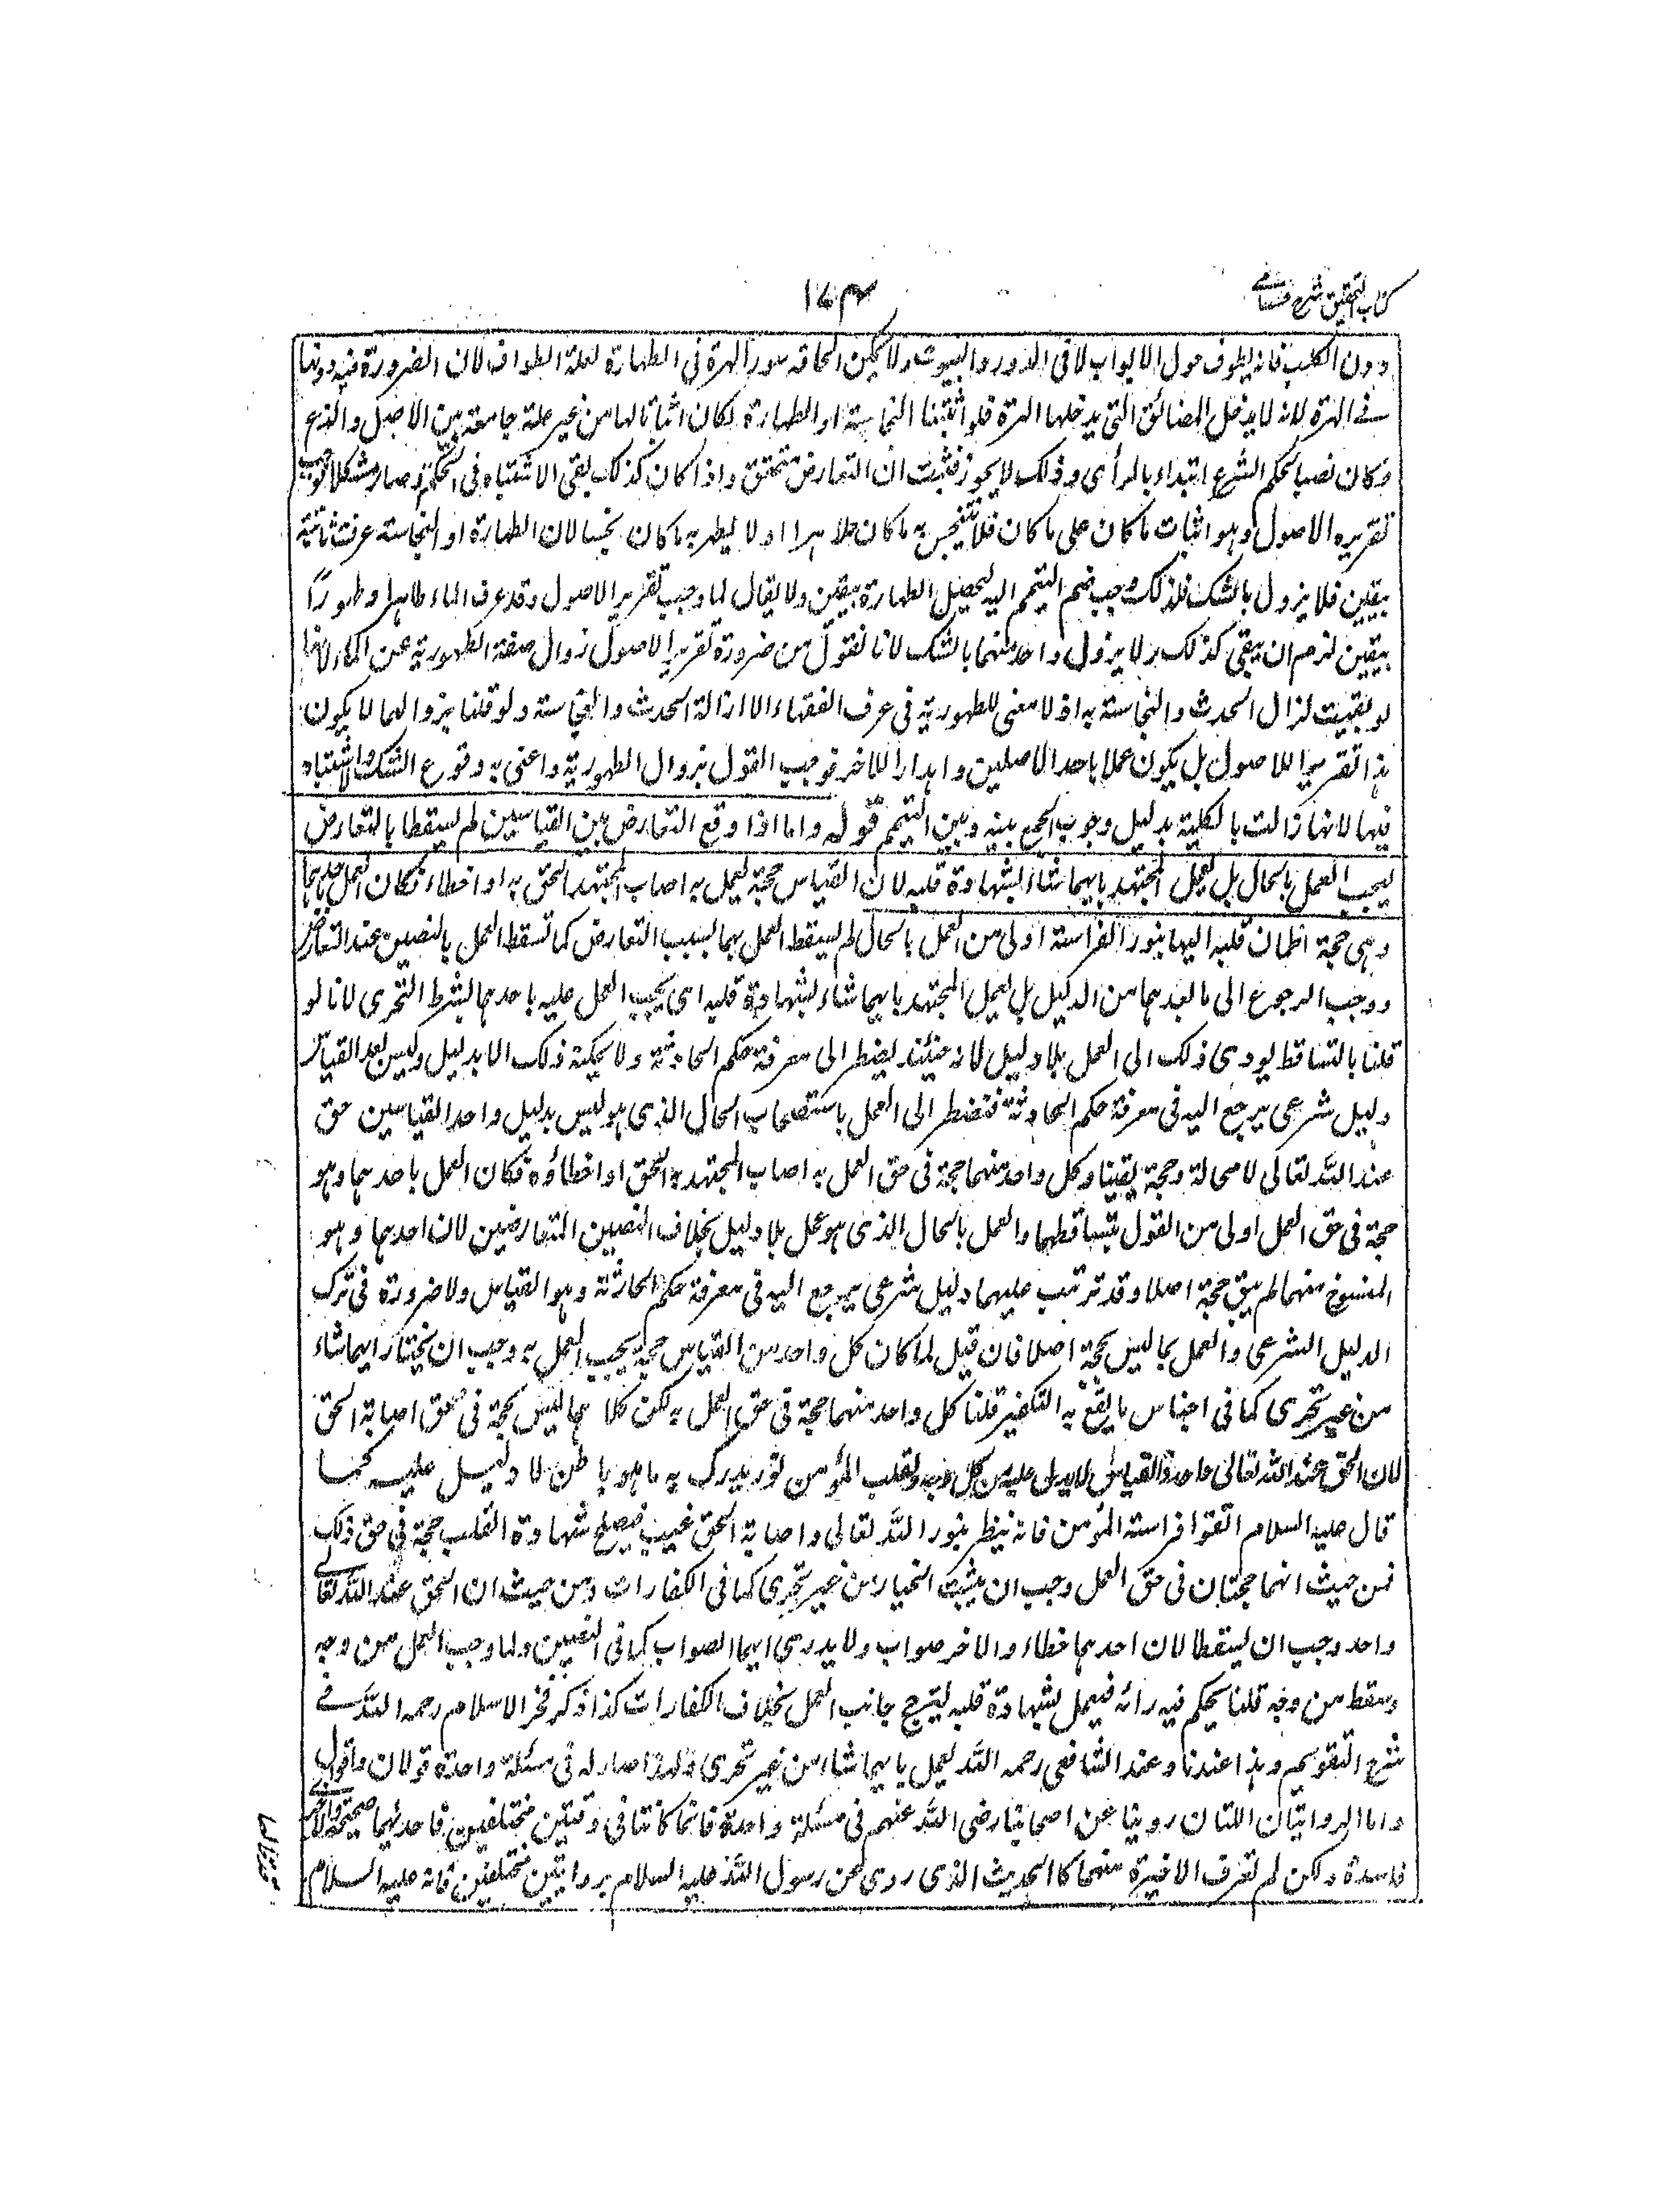 كتاب التحقيق شرح حسامی
١٧٣
دون الكلب فانه يطوف حول الابواب لا فى الدور والبيوت ولا يمكن الحاقه بسور الهرة فى الطهارة لعلة الطواف لان الضرورة فيه دونها
فى الهرة لانه لا يدخل المضائق التى يدخلها الهرة فلو اثبتنا النجاسة او الطهارة لكان اثباتا لها من غير علة جامعة بين الاصل والفرع
وكان نصبا لحكم الشرع ابتداء بالرأى وذلك لا يجوز فثبت ان التعارض تحقق واذا كان كذلك بقى الاشتباه فى الحكم وصار مشكلا فوجب
تقرير الاصول وهو اثبات ما كان على ما كان فلا يتنجس به ما كان طاهرا ولا يطهر به ما كان نجسا لان الطهارة او النجاسة عرفت ثابتة
بيقين فلا يزول بالشك فلذلك وجب ضم التيمم اليه ليحصل الطهارة بيقين ولا يقال لما وجب تقرير الاصول وقد عرف الماء طاهرا وطهورًا
بيقين لزم ان يبقى كذلك ولا يزول واحد منهما بالشك لانا نقول من ضرورة تقرير الاصول زوال صفة الطهورية عن الماء لانها
لو بقيت لزال الحدث والنجاسة به اذ لا معنى للطهورية فى عرف الفقهاء الا ازالة الحدث والنجاسة ولو قلنا بزوالهما لا يكون
هذا تقريرا للاصول بل يكون عملا باحد الاصلين واهدارا للاخر فوجب القول بزوال الطهورية واعنى به وقوع الشك والاشتباه
فيها لا انها زالت بالكلية بدليل وجوب الجمع بينه وبين التيمم قوله واما اذا وقع التعارض بين القياسين لم يسقطا بالتعارض
ليجب العمل بالحال بل يعمل المجتهد بايهما شاء بشهادة قلبه لان القياس حجة يعمل به اصاب المجتهد الحق به او اخطاء فكان العمل باحدهما
وهى حجة اطمان قلبه اليها بنور الفراسة اولى من العمل بالحال لم يسقط العمل بهما بسبب التعارض كما تسقط العمل بالنصين عند التعارض
ووجب الرجوع الى ما بعدهما من الدليل بل يعمل المجتهد بايهما شاء بشهادة قلبه اى يجب العمل عليه باحدهما بشرط التحرى لانا لو
قلنا بالتساقط يودى ذلك الى العمل بلا دليل لانه حينئذ يضطر الى معرفة حكم الحادثة ولا يمكنه ذلك الا بدليل وليس بعد القياس
دليل شرعى يرجع اليه فى معرفة حكم الحادثة فتضطر الى العمل باستصحاب الحال الذى هو ليس بدليل واحد القياسين حق
عند الله تعالى لا محالة وحجة يقينا وكل واحد منهما حجة فى حق العمل به اصاب المجتهد به الحق او اخطاؤه فكان العمل باحدهما وهو
حجة فى حق العمل اولى من القول بتساقطهما والعمل بالحال الذى هو عمل بلا دليل بخلاف النصين المتعارضين لان احدهما وهو
المنسوخ منهما لم يبق حجة اصلا وقد ترتب عليهما دليل شرعى يرجع اليه فى معرفة حكم الحادثة وهو القياس ولا ضرورة فى ترك
الدليل الشرعى والعمل بما ليس بحجة اصلا فان قيل لما كان كل واحد من القياس حجة يجب العمل به وجب ان يختار ايهما شاء
من غير تحرى كما فى اجناس ما يقع به التكفير قلنا كل واحد منهما حجة فى حق العمل به لكن كلا هما ليس بحجة فى حق اصابة الحق
لان الحق عند الله تعالى واحد والقياس لا يدل عليه من كل وجه ولقلب المؤمن نور يدرك به ما هو باطن لا دليل عليه كما
قال عليه السلام اتقوا فراسة المؤمن فانه ينظر بنور الله تعالى واصابة الحق غيب فيصلح شهادة القلب حجة فى حق ذلك
فمن حيث انهما حجتان فى حق العمل وجب ان يثبت الخيار من غير تحرى كما فى الكفارات ومن حيث ان الحق عند الله تعالى
واحد وجب ان يسقطا لان احدهما خطاء والاخر صواب ولا يدرى ايهما الصواب كما فى النصين ولما وجب العمل من وجه
وسقط من وجه قلنا يحكم فيه رائه فيعمل بشهادة قلبه ليترجح جانب العمل بخلاف الكفارات كذا ذكر فخر الاسلام رحمه الله فى
شرح التقويم وهذا عندنا وعند الشافعى رحمه الله يعمل بايهما شاء من غير تحرى ولهذا صار له فى مسئلة واحدة قولان واقوال
واما الروايتان اللتان رويتا عن اصحابنا رضى الله عنهم فى مسئلة واحدة فانما كانتا فى وقتين مختلفين فاحدهما صحيحة والاخرى
فاسدة ولكن لم تعرف الاخيرة منهما كالحديث الذى روى عن رسول الله عليه السلام بروايتين مختلفتين فانه عليه السلام